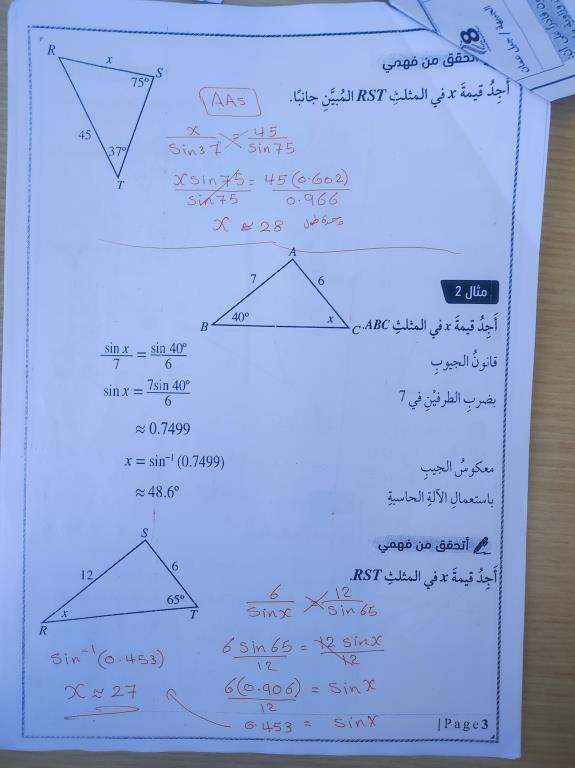 8
أتحقق من فهمي
أَجِدُ قيمةَ x في المثلثِ RST المُبيَّنِ جانبًا.
R
x
S
75º
45
37º
T
AAS
x / sin37 = 45 / sin75
x sin75 / sin75 = 45(0.602) / 0.966
x ≈ 28 وحدة طول
مثال 2
أَجِدُ قيمةَ x في المثلثِ ABC.
A
7
6
B
40º
x
C
قانونُ الجيوبِ
sin x / 7 = sin 40º / 6
بضربِ الطرفيْنِ في 7
sin x = 7sin 40º / 6
≈ 0.7499
معكوسُ الجيبِ
x = sin⁻¹ (0.7499)
باستعمالِ الآلةِ الحاسبةِ
≈ 48.6º
أتحقق من فهمي
أَجِدُ قيمةَ x في المثلثِ RST.
S
12
6
65º
x
R
T
6 / sinx = 12 / sin65
6 sin65 / 12 = 12 sinx / 12
6(0.906) / 12 = sinx
0.453 = sinx
sin⁻¹(0.453)
x ≈ 27
| P a g e 3